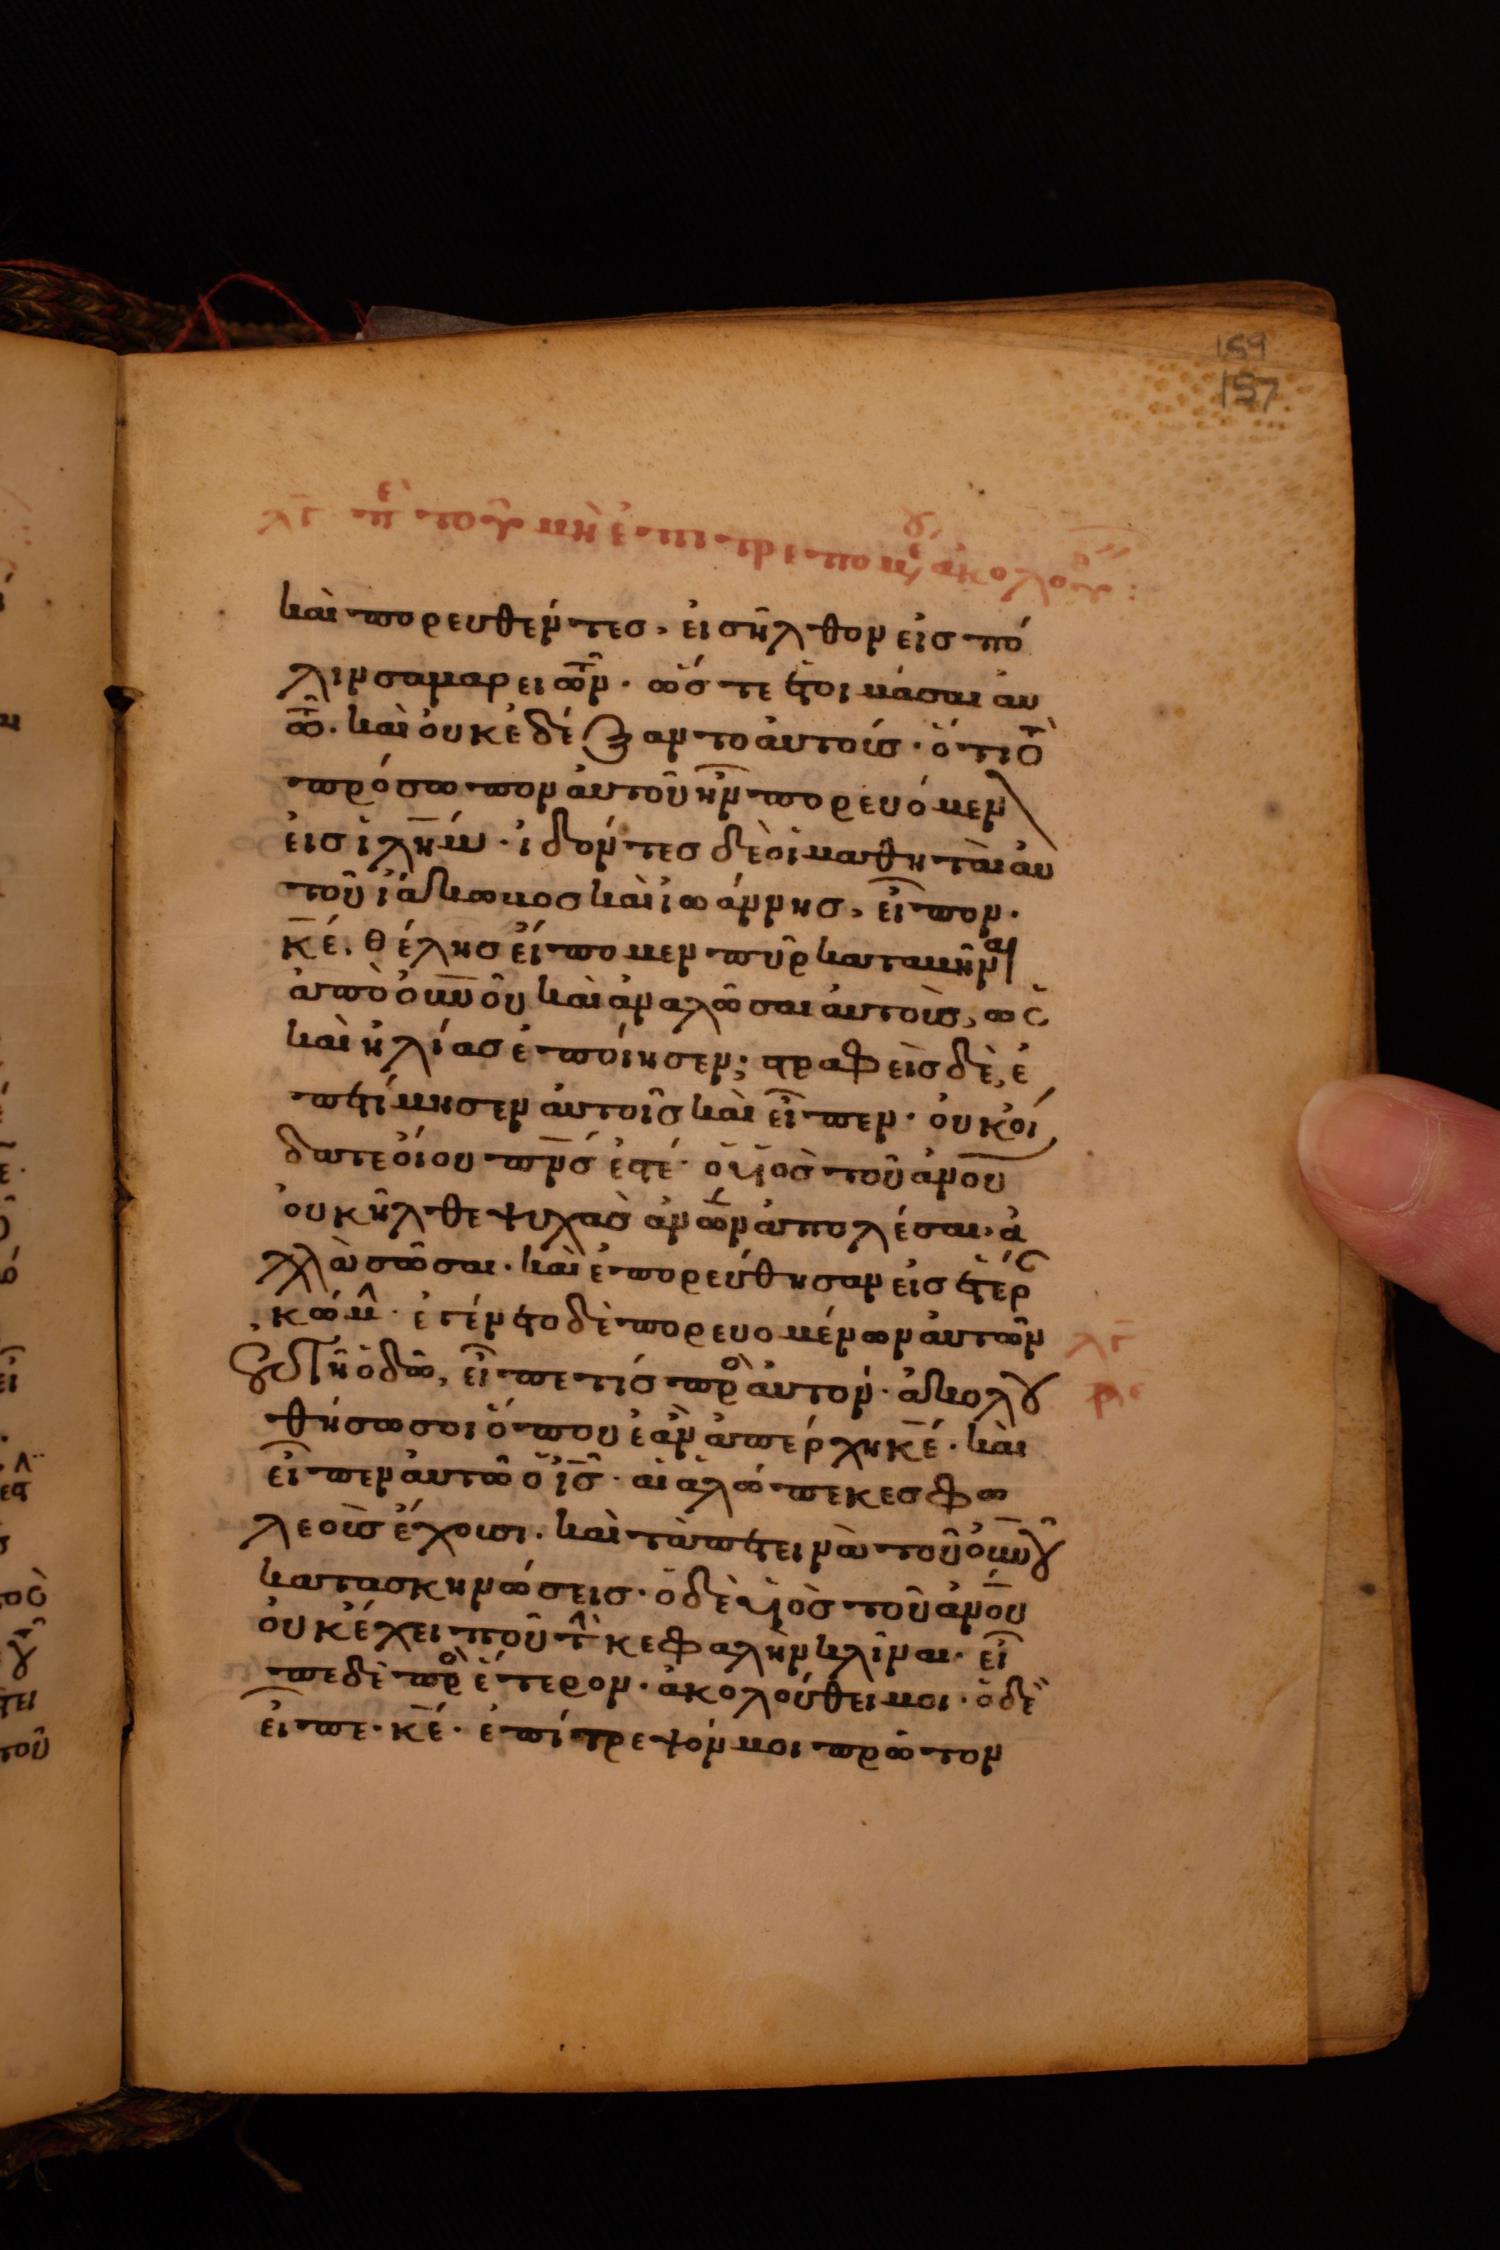 159
157
καὶ πορευθέντες, εἰσῆλθον εἰς πό
λιν σαμαρειτῶν· ὥστε ἑτοιμάσαι αὐ
τῶ. καὶ οὐκ ἐδέξαντο αὐτοίς· ὅτι τὸ
πρόσωπον αὐτοῦ ἦν πορευόμεν
εἰς ἰλῆμ· ἰδόντες δὲ οἱ μαθηταὶ αὐ
τοῦ ἰάκωβος καὶ ἰωάννης, εἶπον·
κέ, θέλησ εἴπομεν πῦρ καταβῆναι
ἀπὸ ὀυνοῦ καὶ ἀναλῶσαι αὐτοὺς, ὡς
καὶ ἠλίας ἐποίησεν; στραφεὶς δὲ, ἐ
πετίμησεν αὐτοῖς καὶ εἶπεν· οὐκ οἴ
δατε οἵου πνς ἐστέ· ὁ υἱὸς τοῦ ἀνου
οὐκ ἦλθε ψυχὰς ἀνων ἀπολέσαι, ἀ
λλὰ σῶσαι· καὶ ἐπορεύθησαν εἰς ἑτέρ
κώμ· ἐγένετο δὲ πορευομένων αὐτῶν
ἐν τῆ ὁδῶ, εἶπε τίς πρὸ αὐτόν· ἀκολου
θήσω σοι ὅπου ἐὰν ἀπέρχη κέ· καὶ
εἶπεν αὐτῶ ὁ ἰς· αἱ ἀλώπεκες φω
λεοὺς ἔχουσι. καὶ τὰ πετεινὰ τοῦ οὐνου
κατασκηνώσεις· ὁ δὲ υἱὸς τοῦ ἀνου
οὐκ ἔχει ποῦ τὴν κεφαλὴν κλῖναι· εἶ
πε δὲ πρὸ ἕτερον· ἀκολούθει μοι· ὁ δὲ
εἶπε· κέ· ἐπίτρεψόν μοι πρῶτον